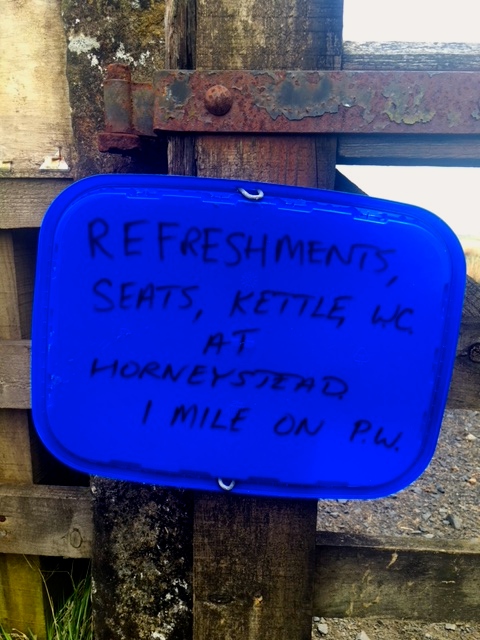 REFRESHMENTS,
SEATS, KETTLE, WC,
AT
HORNEYSTEAD
1 MILE ON P.W.